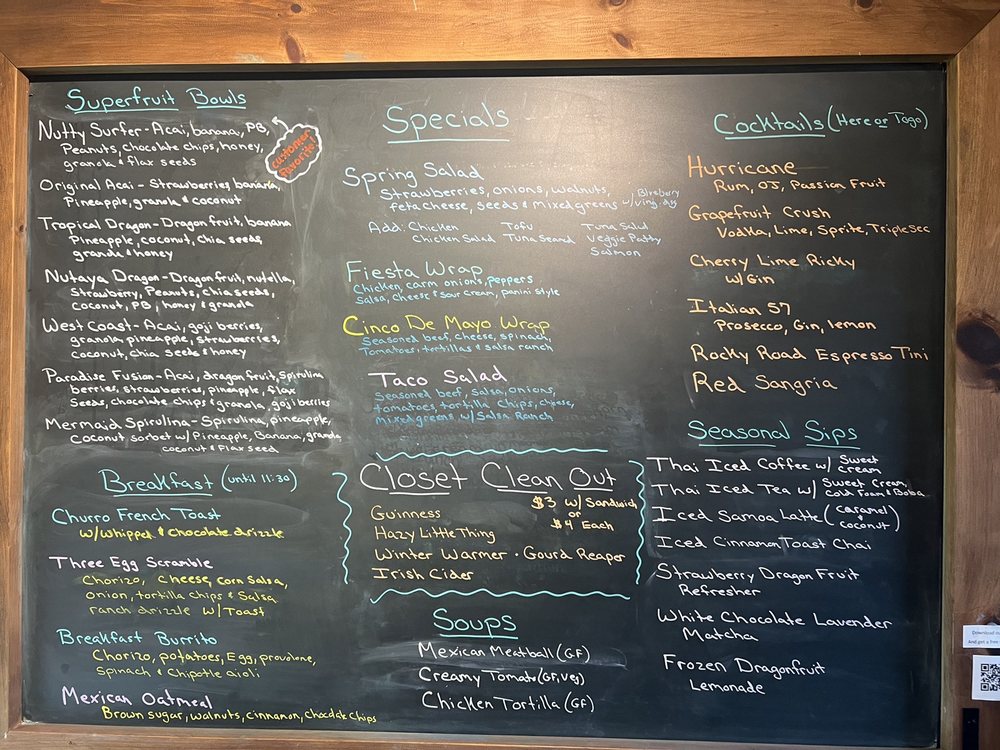 Superfruit Bowls
Nutty Surfer-Acai, banana, PB,
Peanuts, chocolate chips, honey,
granola & flax seeds
customer
favorite!
Original Acai - Strawberries banana,
Pineapple, granola & coconut
Tropical Dragon-Dragonfruit, banana
Pineapple, coconut, chia seeds,
granola & honey
Nutaya Dragon-Dragonfruit, nutella,
Strawberry, Peanuts, Chia seeds,
coconut, PB, honey & granola
West Coast-Acai, goji berries,
granola pineapple, strawberries,
coconut, chia seeds & honey
Paradise Fusion-Acai, dragon fruit, Spirulina
berries, strawberries, pineapple, flax
Seeds, chocolate chips & granola, goji berries
Mermaid Spirulina-Spirulina, pineapple,
Coconut sorbet w/ Pineapple, Banana, granola
coconut & Flaxseed
Breakfast (until 11:30)
Churro French Toast
w/Whipped & chocolate drizzle
Three Egg Scramble
Chorizo, cheese, corn salsa,
onion, tortilla chips & Salsa
ranch drizzle w/Toast
Breakfast Burrito
Chorizo, potatoes, Egg, provolone,
Spinach & Chipotle aioli
Mexican Oatmeal
Brown sugar, walnuts, cinnamon, chocolate chips
Specials
Spring Salad
Strawberries, onions, walnuts,
feta cheese, seeds & Mixed greens w/ Blueberry
Add: Chicken Tofu Tuna Salad
Chicken Salad Tuna Seared Veggie Patty
Salmon
Fiesta Wrap
Chicken, carm onions, peppers
Salsa, cheese & sour cream, panini style
Cinco De Mayo Wrap
Seasoned beef, cheese, spinach,
Tomatoes, tortillas & salsa ranch
Taco Salad
Seasoned beef, Salsa, onions,
tomatoes, tortilla Chips, cheese,
mixed greens w/ Salsa Ranch
Closet Clean Out
$3 w/ Sandwich
or
$4 Each
Guinness
Hazy Little Thing
Winter Warmer · Gourd Reaper
Irish Cider
Soups
Mexican Meatball (GF)
Creamy Tomato (GF, Veg)
Chicken Tortilla (GF)
Cocktails (Here or Togo)
Hurricane
Rum, OJ, Passion Fruit
Grapefruit Crush
Vodka, Lime, Sprite, Triple Sec
Cherry Lime Ricky
w/ Gin
Italian 57
Prosecco, Gin, lemon
Rocky Road Espresso Tini
Red Sangria
Seasonal Sips
Thai Iced Coffee w/ Sweet
cream
Thai Iced Tea w/ Sweet Cream,
Cold Foam & Boba
Iced Samoa Latte (caramel &
coconut)
Iced Cinnamon Toast Chai
Strawberry Dragon Fruit
Refresher
White Chocolate Lavender
Matcha
Frozen Dragonfruit
Lemonade
Download
And get a free